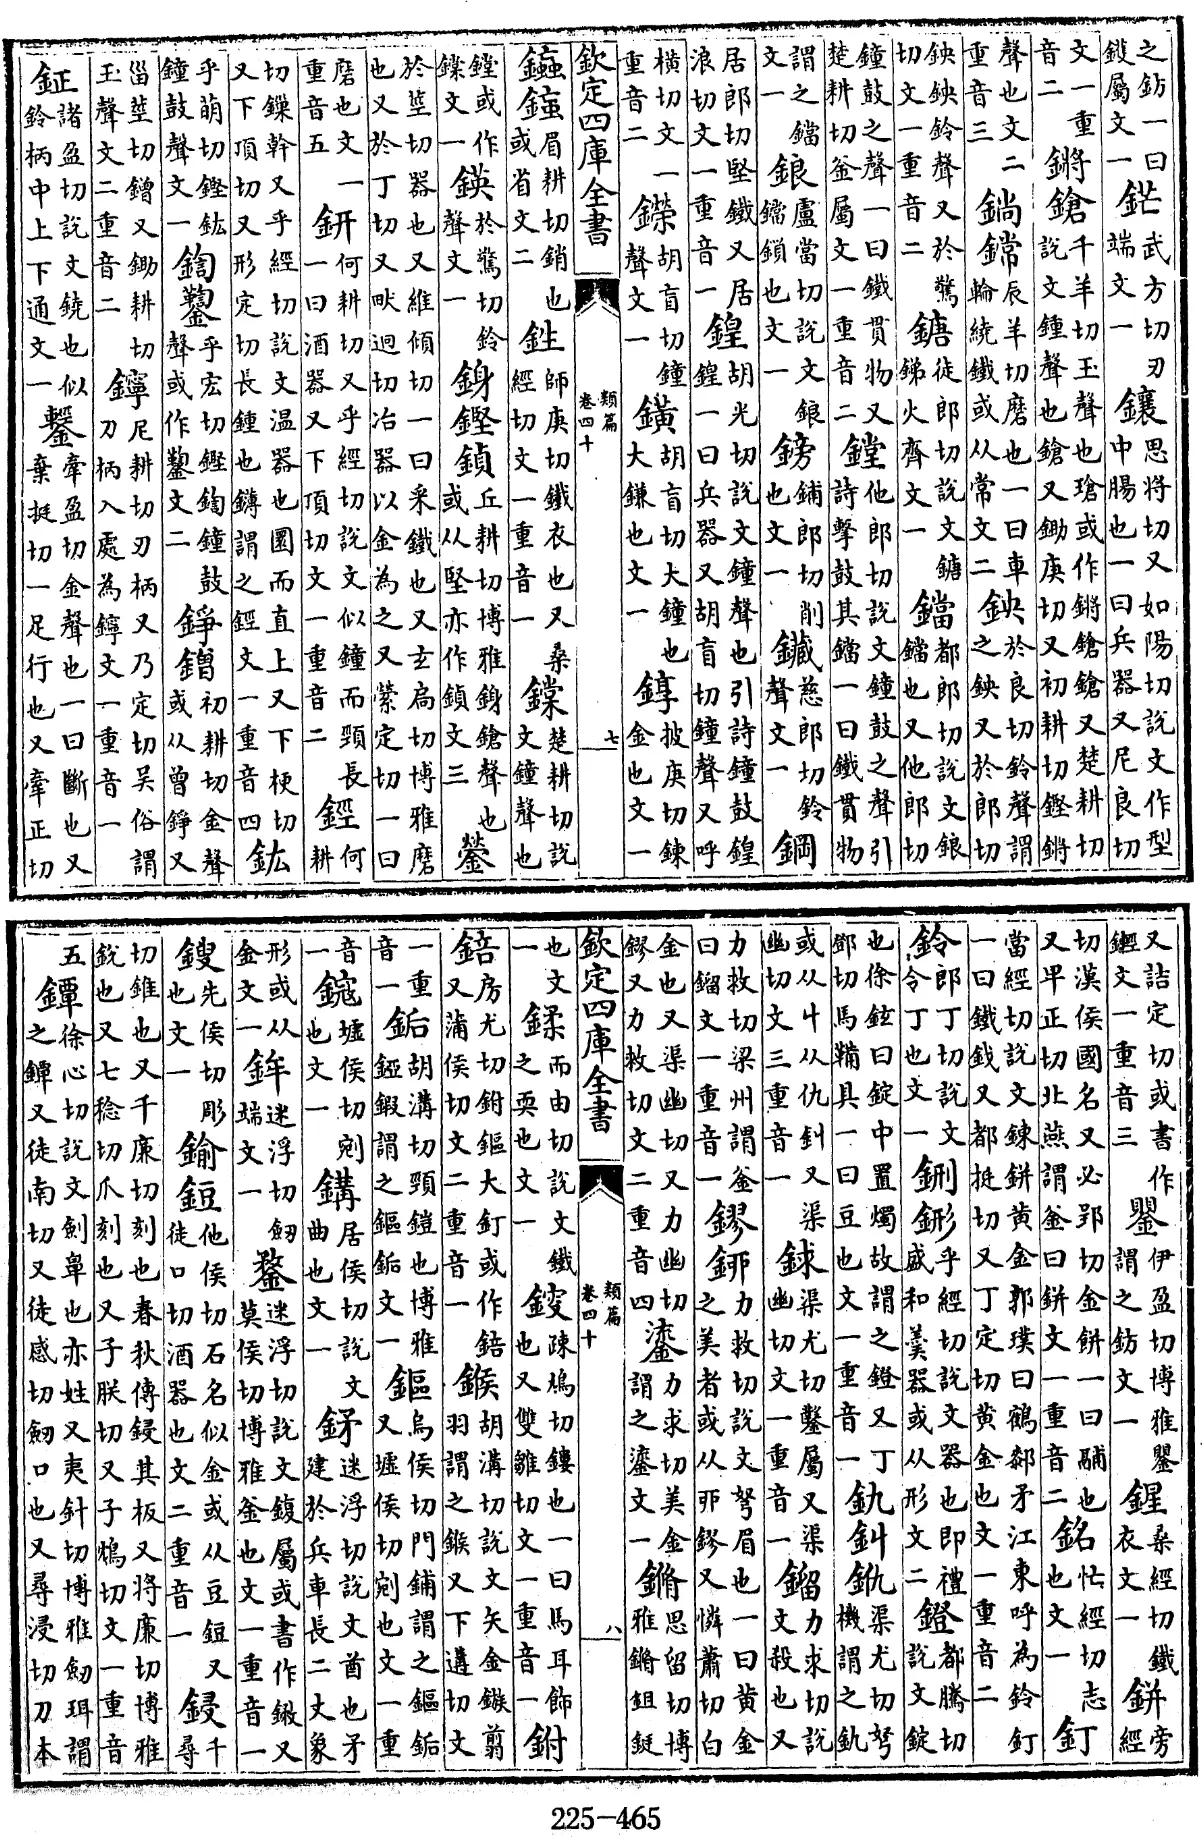 之鈁一曰鎫屬文一鋩武方切刃端文一鑲思將切又如陽切說文作型中腸也一曰兵器又尼良切
文一重音二鏘鎗千羊切玉聲也瑲或作鏘鎗又楚耕切說文鍾聲也鎗又鋤庚切又初耕切鏗鏘
聲也文二重音三鋿鏛辰羊切磨也一曰車輪繞鐵或从常文二鉠於良切鈴聲謂之鉠又於郎切
鉠鉠鈴聲又於驚切文一重音二鎕徒郎切說文鎕銻火齊文一鐺都郎切說文鋃鐺也又他郎切
鐘鼓之聲一曰鐵貫物又楚耕切釜屬文一重音二鏜他郎切說文鐘鼓之聲引詩擊鼓其鏜一曰鐵貫物
謂之鐺文一鋃盧當切說文鋃鐺鎖也文一鎊鋪郎切削也文一鑶慈郎切鈴聲文一鋼
居郎切堅鐵又居浪切文一重音一鍠胡光切說文鐘聲也引詩鐘鼓鍠鍠一曰兵器又胡盲切鐘聲又呼
橫切文一重音二鑅胡盲切鐘聲文一鐄胡盲切大鐘也大鎌也文一錞披庚切鍊金也文一
欽定四庫全書 類篇卷四十 七
眉耕切銷也或省文二鉎師庚切鐵衣也又桑經切文一重音一楚耕切說文鐘聲也
鏜或作文一鍈於驚切鈴聲文一銵鏗鍞丘耕切博雅銵鎗聲也或从堅亦作鍞文三鎣
於莖切器也又維傾切一曰采鐵也又玄扃切博雅磨也又於丁切又畎迥切冶器以金為之又縈定切一曰
磨也文一重音五鈃何耕切又乎經切說文似鐘而頸長一曰酒器又下頂切文一重音二鋞何耕
切鏁幹又乎經切說文溫器也圜而直上又下梗切又下頂切又形定切長鍾也鏄謂之鋞文一重音四鈜
乎萌切鏗鈜鐘鼓聲文一鍧乎宏切鏗鍧鐘鼓聲或作文二錚鏳初耕切金聲或从曾錚又
甾莖切鏳又鋤耕切玉聲文二重音二鑏尼耕切刃柄又乃定切吳俗謂刀柄入處為鑏文一重音一
鉦諸盈切說文鐃也似鈴柄中上下通文一鏧牽盈切金聲也一曰斷也又棄挺切一足行也又牽正切
又詰定切或書作鑋文一重音三鑍伊盈切博雅鑍謂之鈁文一鍟桑經切鐵衣文一鉼旁經
切漢侯國名又必郢切金餅一曰鬴也又平正切北燕謂釜曰鉼文一重音二銘忙經切志也文一釘
當經切說文鍊鉼黃金郭璞曰鶴郄矛江東呼為鈴釘一曰鐵鉞又都挺切又丁定切黃金也文一重音二
鈴郎丁切說文令丁也文一鉶鈃乎經切說文器也即禮盛和羹器或从形文二鐙都騰切說文錠
也徐鉉曰錠中置燭故謂之鐙又丁鄧切馬鞴具一曰豆也文一重音一釚釻銚渠尤切弩機謂之釚
或从丩从仇釻又渠幽切文三重音一銶渠尤切鑿屬又渠幽切文一重音一鎦力求切說文殺也又
力救切梁州謂釜曰鎦文一重音一鏐鉚力救切說文弩眉也一曰黃金之美者或从丣鏐又憐蕭切白
金也又渠幽切又力幽切鏐又力救切文二重音四鎏力求切美金謂之鎏文一鏅思留切博雅鏅鉏鋌
欽定四庫全書 類篇卷四十 八
也文一鍒而由切說文鐵之耎也文一鎪疎鳩切鏤也一曰馬耳飾也又雙雛切文一重音一鉜
錇房尤切鉜鏂大釘或作錇又蒲侯切文二重音一鍭胡溝切說文矢金鏃翦羽謂之鍭又下遘切文
一重音一銗胡溝切頸鎧也博雅錏鍜謂之鏂銗文一鏂烏侯切門鋪謂之鏂銗又墟侯切剜也文一重
音一鏂墟侯切剜也文一鏀居侯切說文曲也文一鉾迷浮切說文酋矛也建於兵車長二丈象
形或从金文一鉾迷浮切劒端文一鍪迷浮切說文鍑屬或書作䥐又莫侯切博雅釜也文一重音一
鎪先侯切彫也文一鍮鋀他侯切石名似金或从豆鋀又徒口切酒器也文二重音一鋟千尋
切錐也又千廉切刻也春秋傳鋟其板又將廉切博雅銳也又七稔切爪刻也又子朕切又子鴆切文一重音
五鐔徐心切說文劒鼻也亦姓又夷針切博雅劒珥謂之鐔又徒南切又徒感切劒口也又尋浸切刀本
225-465